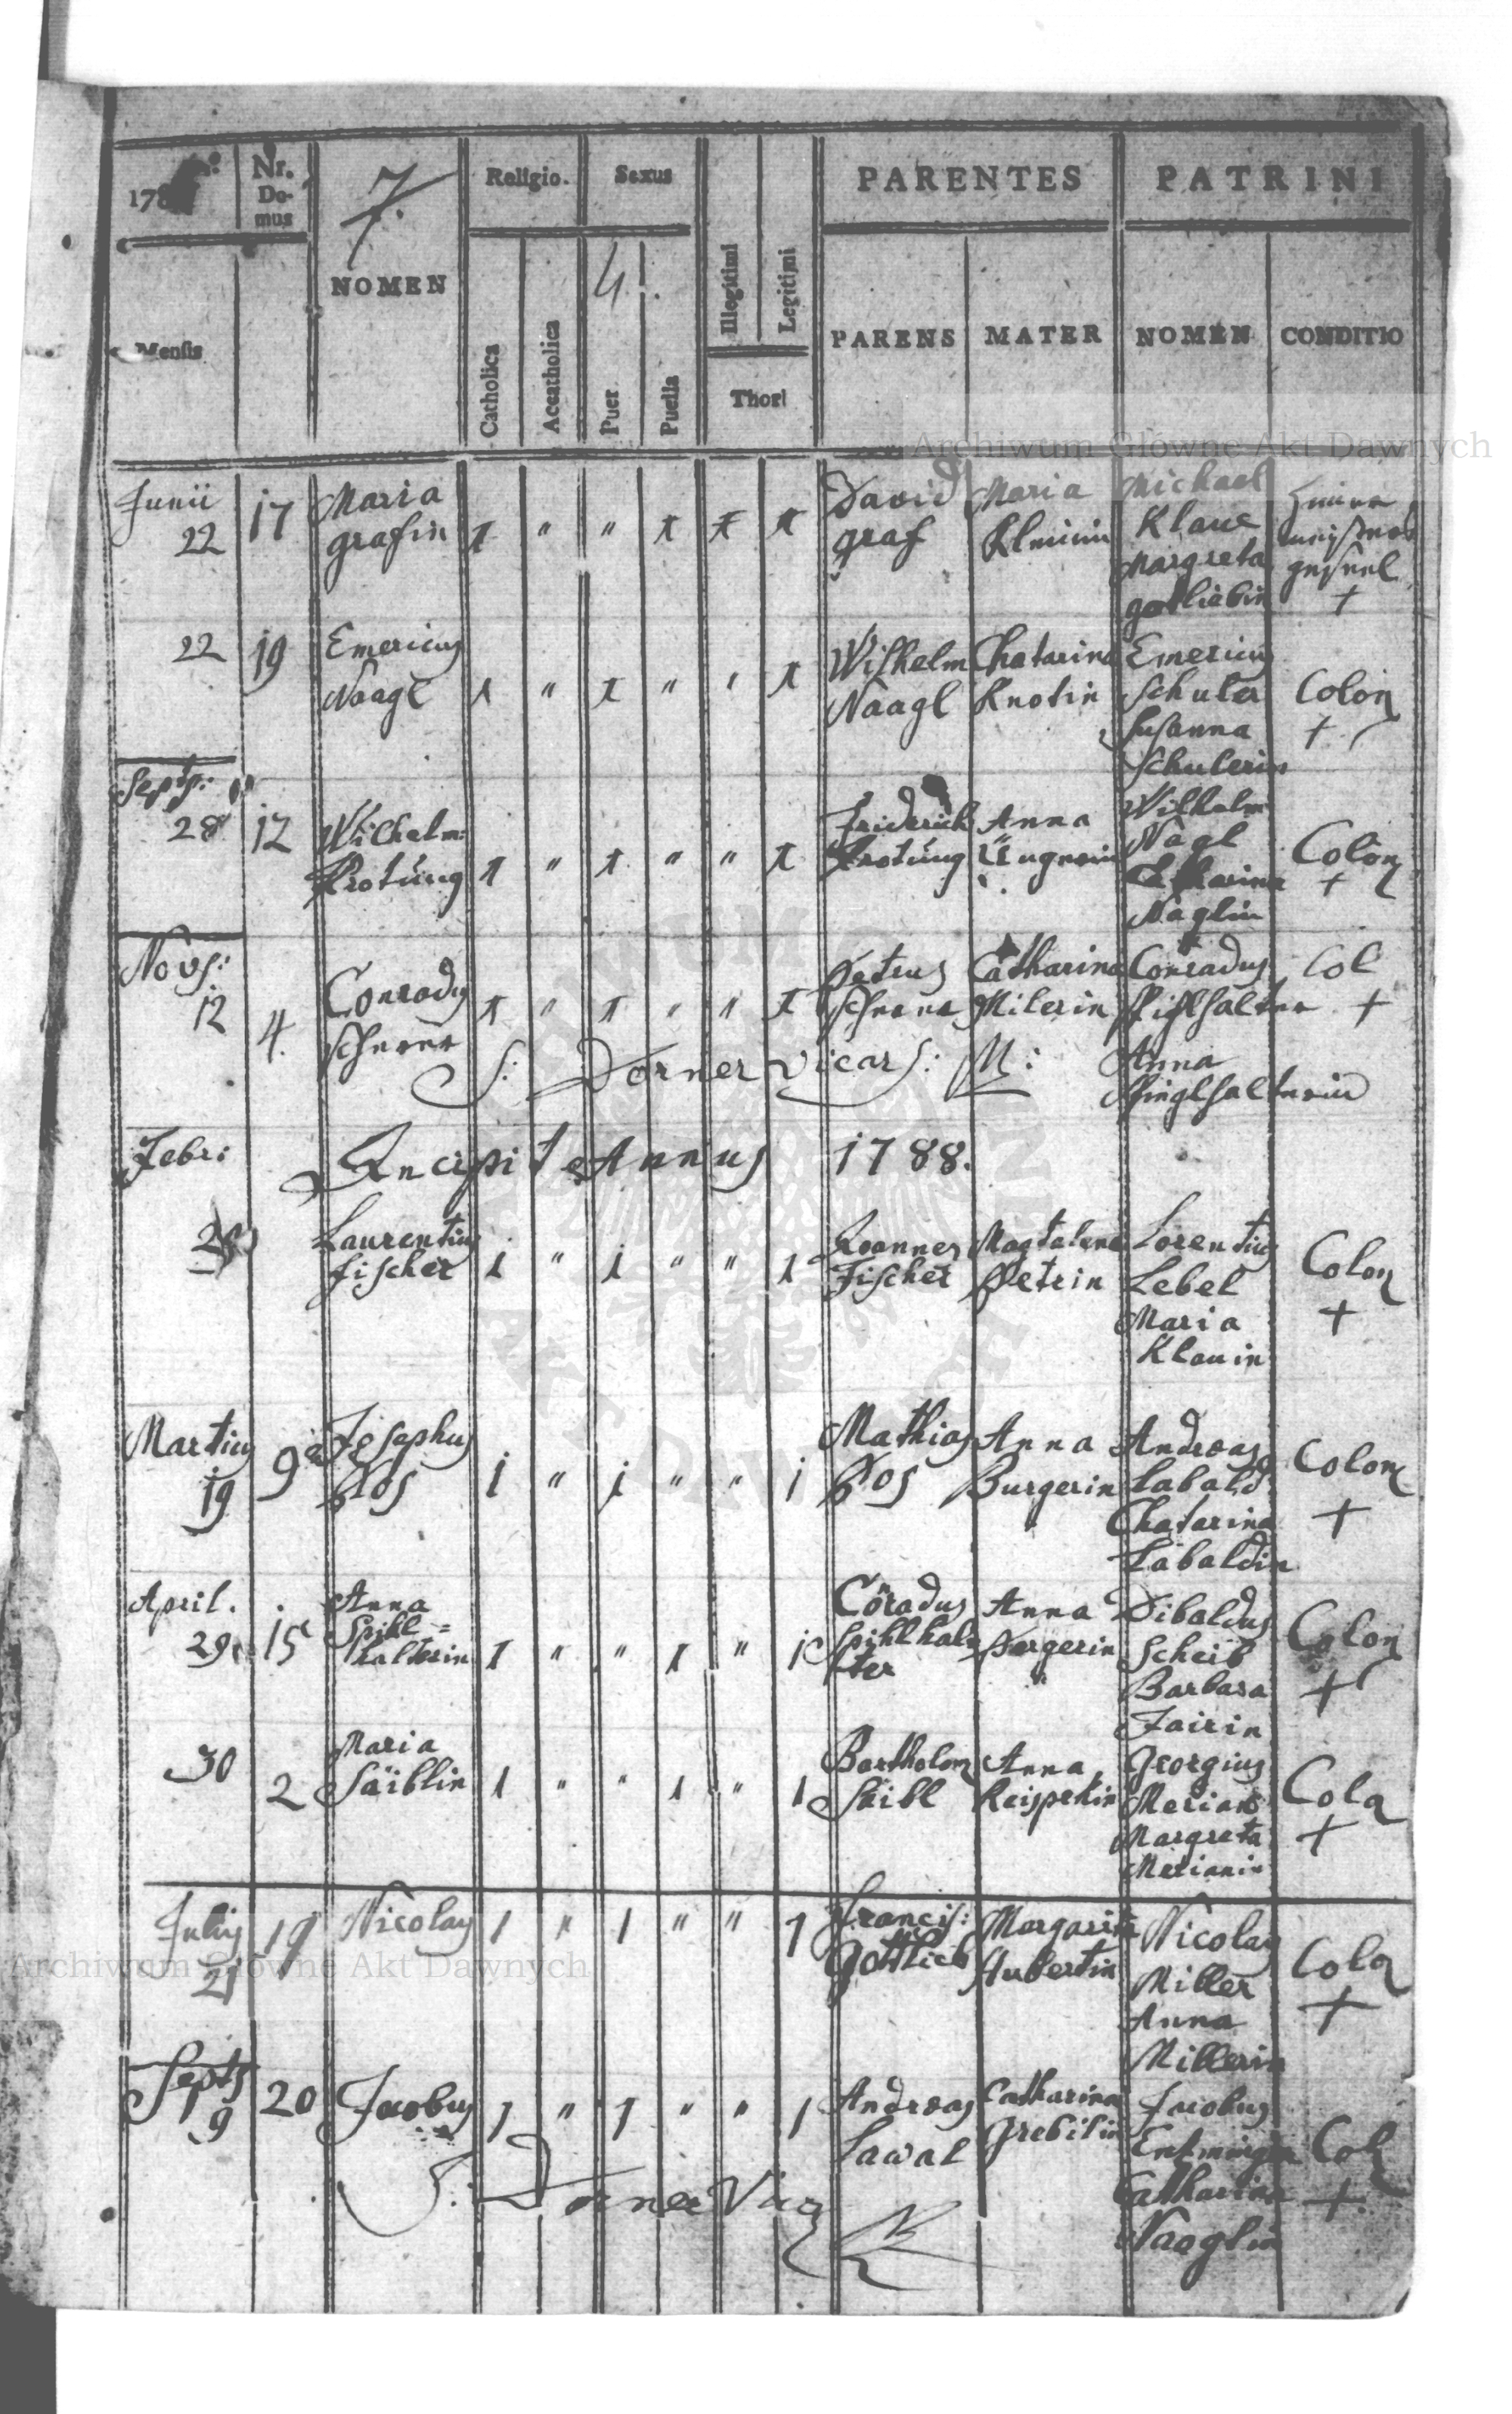 178
Nr. Domus
7.
NOMEN
Religio.
Sexus
4.
Illegitimi
Legitimi
Thori
PARENTES
PATRINI
Mensis
Catholica
Aceatholica
Puer
Puella
PARENS
MATER
NOMEN
CONDITIO
Archiwum Główne Akt Dawnych
Junii 17 Maria David Maria Michael
22 grafin 1 " " 1 1 1 graf Klaue
Margreta
gottliebin +
22 19 Emericus Wilhelm Chatarina Emericus
Naagl 1 " 1 " " 1 Naagl Knotin Schuler Colon
Susanna +
Schulerin
Septbr:
28 12 Wilhelm: Friderich Anna Wilhelm
Krotúng 1 " 1 " " 1 Krotúng Nagl Colon
Catharina +
Naglin
Novbr: Petrus Catharina Conradus Col
12 4. Conradus 1 " 1 " " 1 Milerin +
S: Dorner Vicar: M: Anna
Febr: Incipit Annus 1788.
Laurentius Joannes Magtalena Lorentius
Fischer 1 " 1 " " 1 Fischer Petrin Lebel Colon
Maria +
Klauin
Martius 9 Josephus Mathias Anna Andreas Colon
19 Klos 1 " 1 " " 1 Klos Burgerin Labald +
Chatarina
Labaldin
April. Anna Coradus Anna Dibaldus
29 15 Spihl= 1 " " 1 " 1 Spihlhal Pergerin Scheib Colon
halterin ter Barbara +
Fairin
30 Maria Bartholom Anna Georgius
2 Säiblin 1 " " 1 " 1 Säibl Reisperin Merian Colon
Margreta +
Merianin
Julius 19 Nicolaus 1 " 1 " " 1 Francis: Margarita Nicolaus
21 Gottlieb Hubertin Miller Colon
Anna +
Millerin
Archiwum Główne Akt Dawnych
Septbr 20 Jacobus 1 " 1 " " 1 Andreas Catharina Jacobus
9 Lawal Grebilin Col
S: Dorner Vic Catharina +
Naoglin